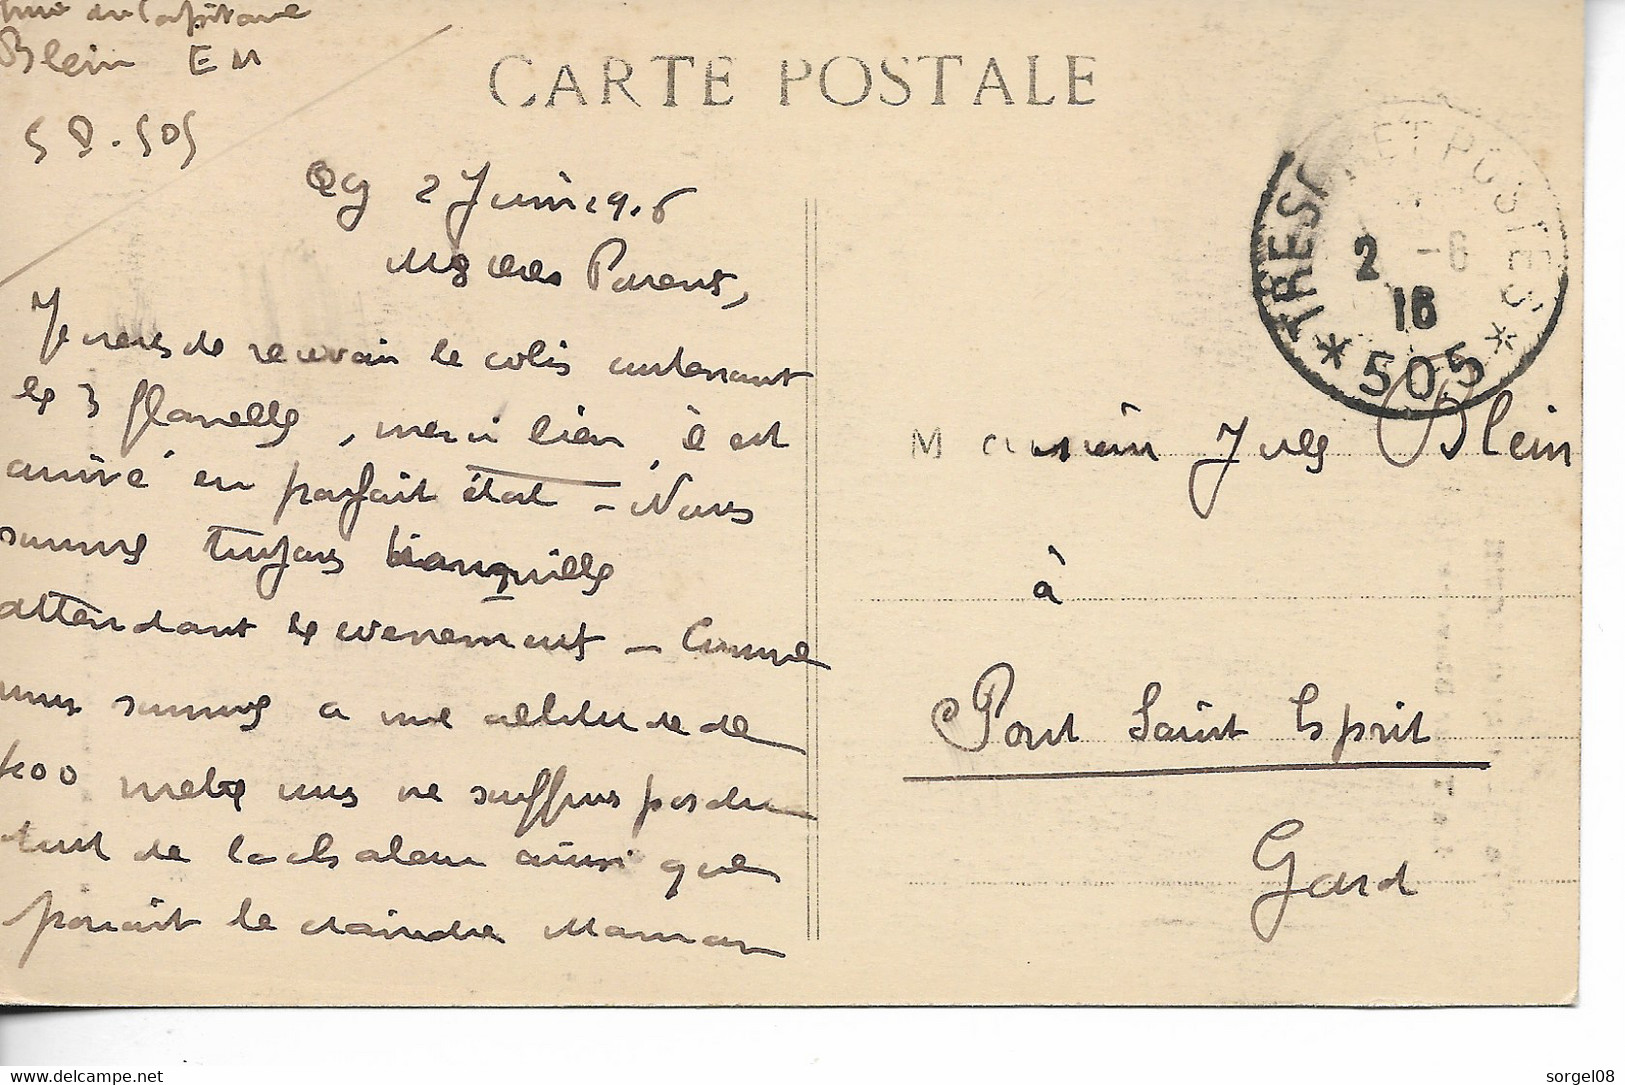 du Capitaine
Blein EM
S P. 505
CARTE POSTALE
TRESOR ET POSTES
2 -6
16
* 505 *
QG 2 Juin 1916
Mes chers Parents,
Je viens de recevoir le colis contenant
les 3 flanelles, merci bien, il est
arrivé en parfait état - Nous
sommes toujours tranquilles
attendant les evenements - Comme
nous sommes a une altitude de
400 metres nous ne souffrons pas du
tout de la chaleur ainsi que
pouvait le craindre Maman
Monsieur Yves Blein
à
Pont Saint Esprit
Gard
sorgel08
www.delcampe.net